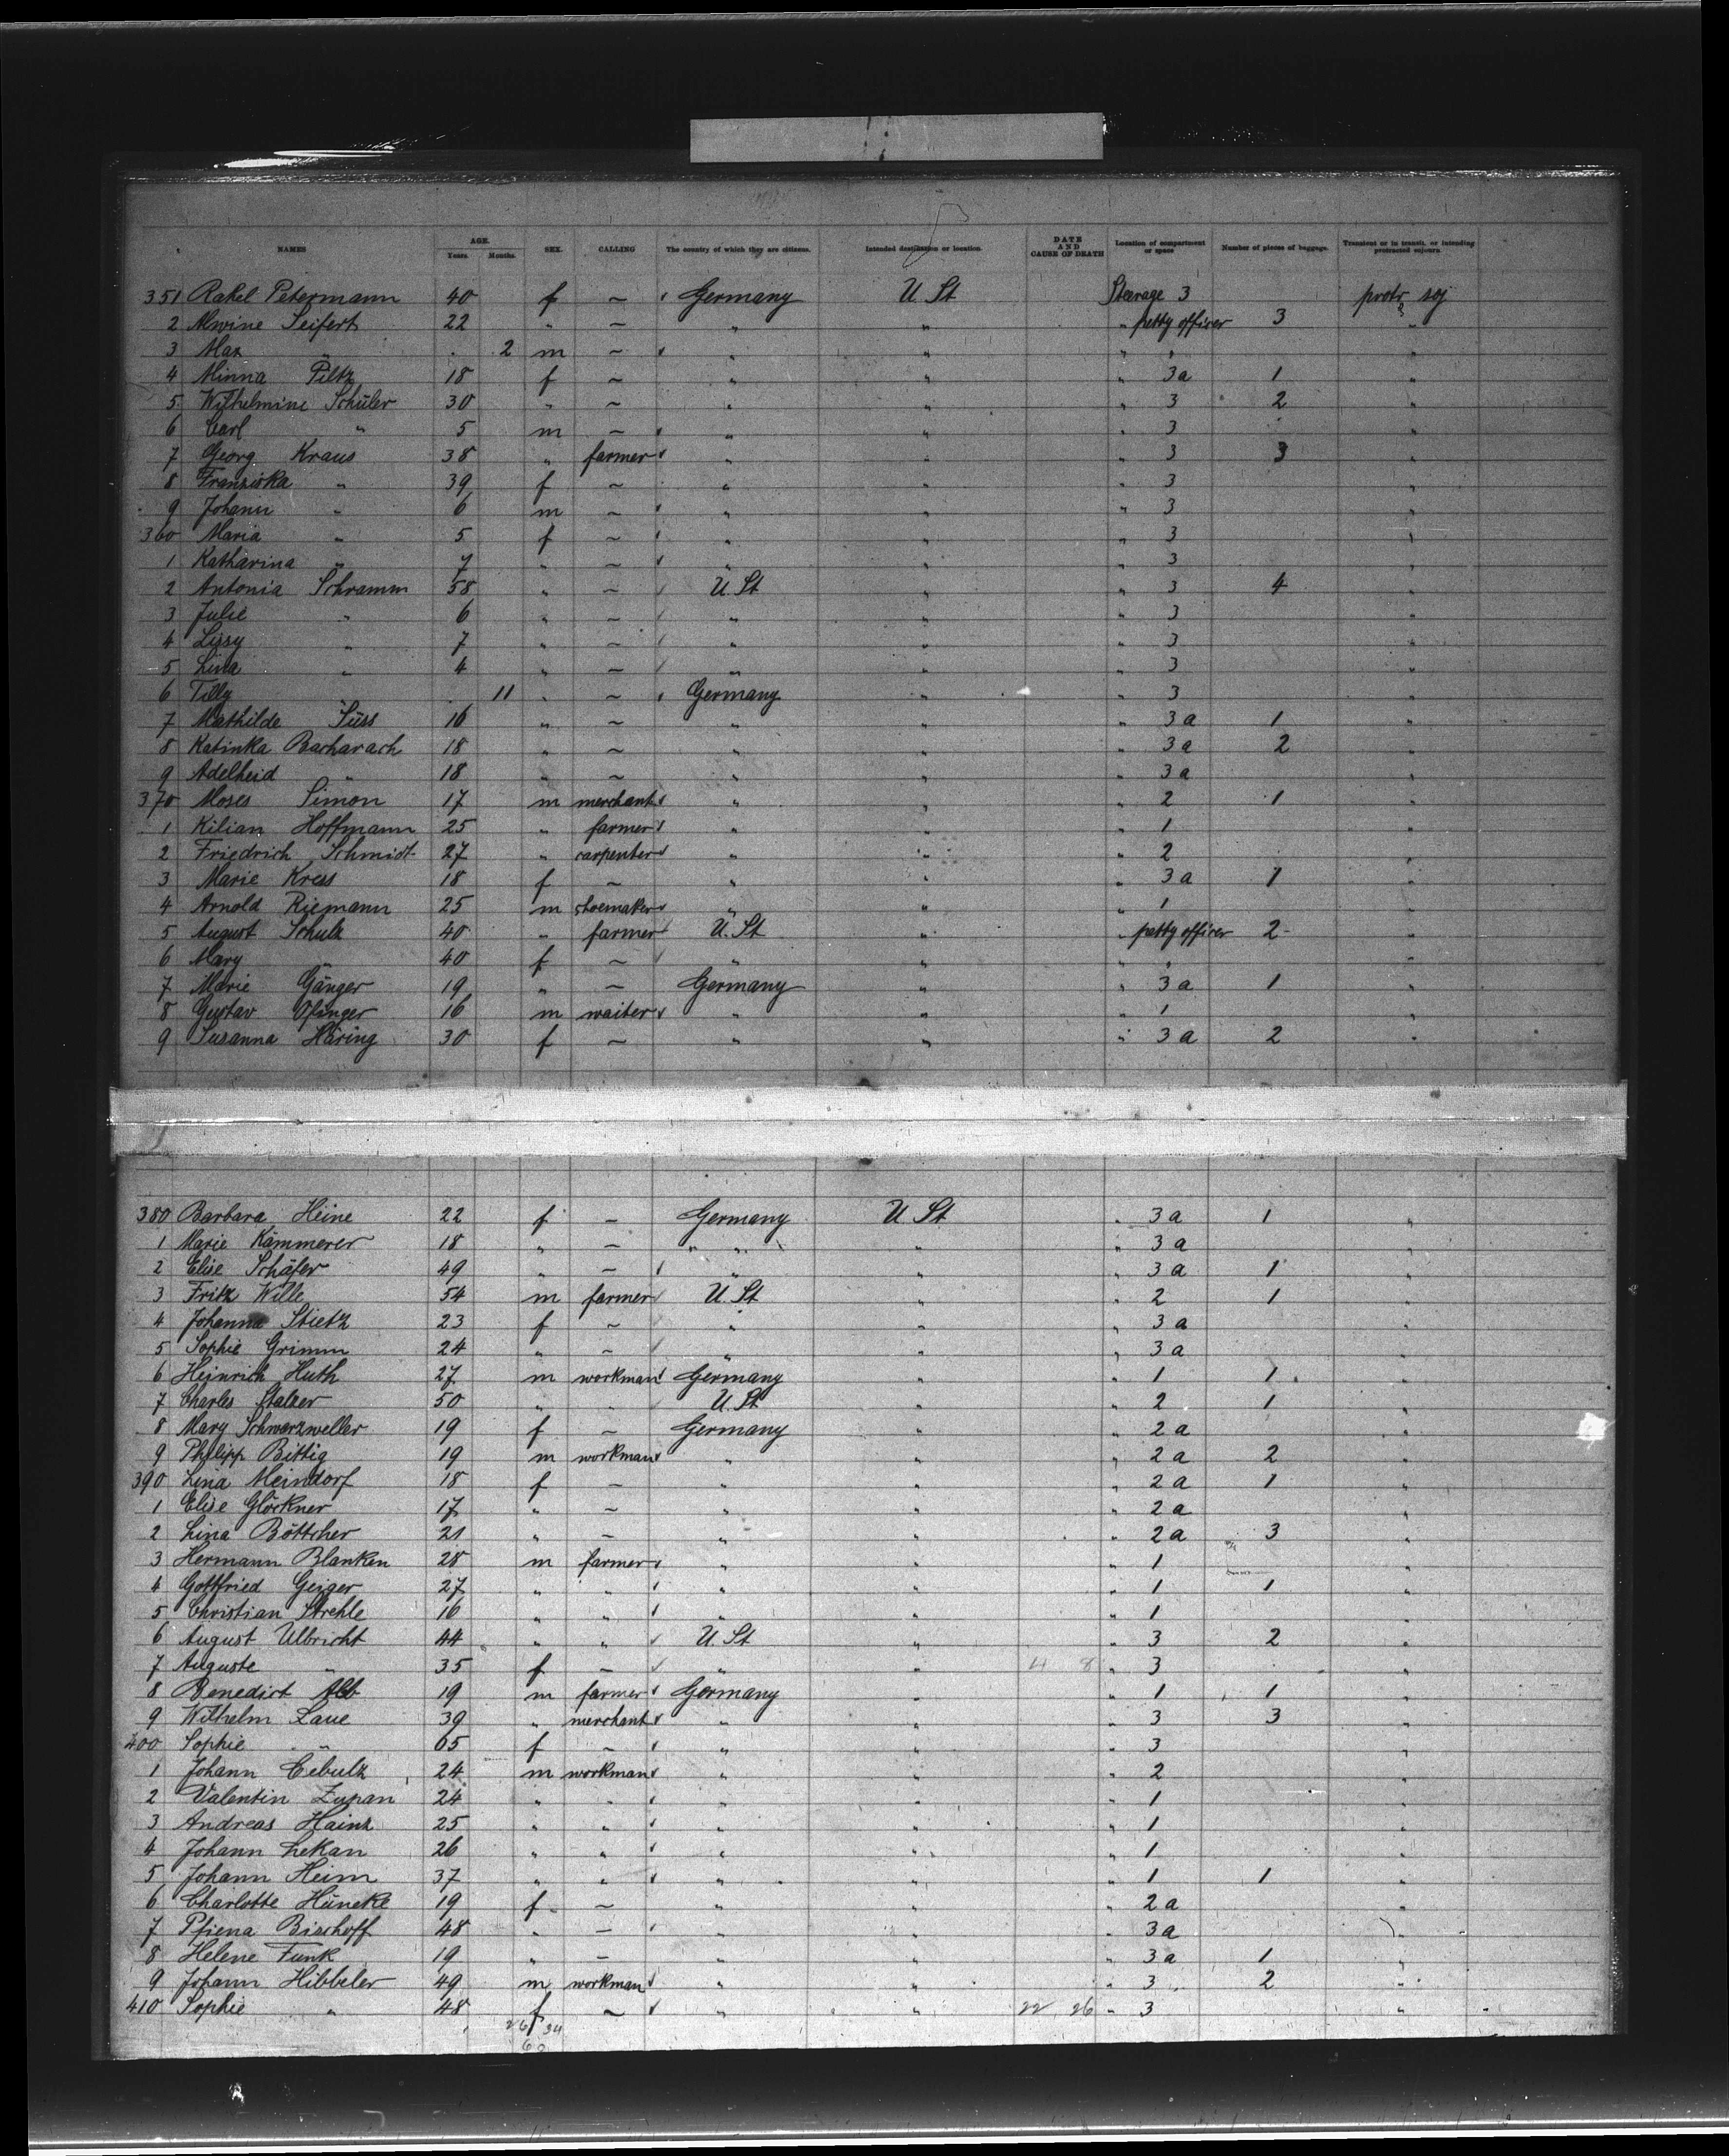 NAMES AGE. Years. Months. SEX. CALLING The country of which they are citizens. Intended destination or location. DATE AND CAUSE OF DEATH Location of compartment or space Number of pieces of baggage. Transient or in transit, or intending protracted sojourn.
351 Rahel Petermann 40 f ~ Germany U St Steerage 3 protr soj
2 Alwine Seifert 22 " ~ " " " petty officer 3 "
3 Max " 2 m ~ " " " " "
4 Minna Piltz 18 f ~ " " " 3a 1 "
5 Wilhelmine Schüler 30 " ~ " " " 3 2 "
6 Carl " 5 m ~ " " " 3 "
7 Georg Kraus 38 " farmer " " " 3 3 "
8 Franziska " 39 f ~ " " " 3 "
9 Johann " 6 m ~ " " " 3 "
360 Maria " 5 f ~ " " " 3 "
1 Katharina " 7 " ~ " " " 3 "
2 Antonia Schramm 58 " ~ U. St " " 3 4 "
3 Julie " 6 " ~ " " " 3 "
4 Lissy " 7 " ~ " " " 3 "
5 Lina " 4 " ~ " " " 3 "
6 Tilly " 11 " ~ Germany " " 3 "
7 Mathilde Süss 16 " ~ " " " 3 a 1 "
8 Katinka Bacharach 18 " ~ " " " 3 a 2 "
9 Adelheid " 18 " ~ " " " 3 a "
370 Moses Simon 17 m merchant " " " 2 1 "
1 Kilian Hoffmann 25 " farmer " " " 1 "
2 Friedrich Schmidt 27 " carpenter " " " 2 "
3 Marie Kress 18 f ~ " " " 3 a 1 "
4 Arnold Riemann 25 m shoemaker " " " 1 "
5 August Schulz 40 " farmer U. St " " petty officer 2 "
6 Mary " 40 f ~ " " " " "
7 Marie Gänger 19 " ~ Germany " " 3 a 1 "
8 Gustav Ofinger 16 m waiter " " " 1 "
9 Susanna Häring 30 f ~ " " " 3 a 2 "
380 Barbara Heine 22 f - Germany U St " 3 a 1 "
1 Marie Kämmerer 18 " ~ " " " 3 a "
2 Elise Schäfer 49 " ~ " " " 3 a 1 "
3 Fritz Wille 54 m farmer U. St " " 2 1 "
4 Johanna Stietz 23 f ~ " " " 3 a "
5 Sophie Grimm 24 " ~ " " " 3 a "
6 Heinrich Huth 27 m workman Germany " " 1 1 "
7 Charles Stalzer 50 " " U. St " " 2 1 "
8 Mary Schwarzweller 19 f ~ Germany " " 2 a "
9 Philipp Bittig 19 m workman " " " 2 a 2 "
390 Lina Meindorf 18 f ~ " " " 2 a 1 "
1 Elise Glöckner 17 " ~ " " " 2 a "
2 Lina Böttcher 21 " ~ " " " 2 a 3 "
3 Hermann Blanken 28 m farmer " " " 1 "
4 Gottfried Geiger 27 " " " " " 1 1 "
5 Christian Strehle 16 " " " " " 1 "
6 August Ulbricht 44 " " U. St " " 3 2 "
7 Auguste " 35 f ~ " " 4 8 " 3 "
8 Benedict Alb 19 m farmer Germany " " 1 1 "
9 Wilhelm Laue 39 " merchant " " " 3 3 "
400 Sophie " 65 f ~ " " " 3 "
1 Johann Cebulz 24 m workman " " " 2 "
2 Valentin Zupan 24 " " " " " 1 "
3 Andreas Hainz 25 " " " " " 1 "
4 Johann Lekan 26 " " " " " 1 "
5 Johann Heim 37 " " " " " 1 1 "
6 Charlotte Hüneke 19 f ~ " " " 2 a "
7 Bischoff 48 " ~ " " " 3a "
8 Helene Funk 19 " ~ " " " 3 a 1 "
9 Johann Hibbeler 49 m workman " " " 3 2 "
410 Sophie " 48 f ~ " " 22 26 " 3 "
26 34
60